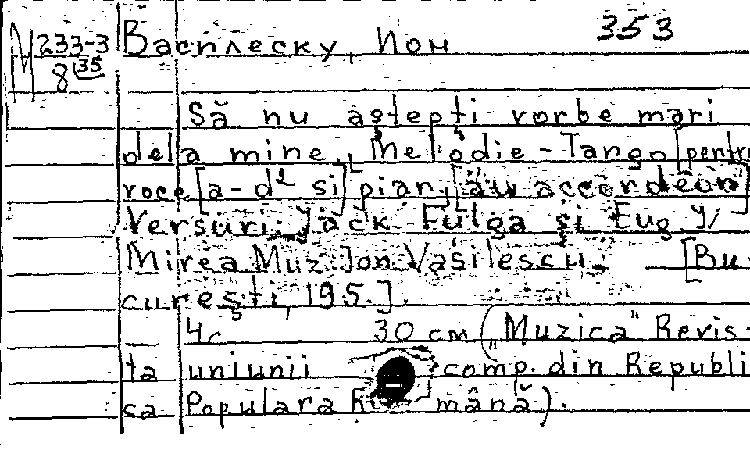 353
М 233-3 Василеску, Ион
8 35
Să nu aștepți vorbe mari
dela mine. Melodie-Tango [pentru
voce [a-d² si] pian, [au accordeon]
Versuri Jack Fulga și Eug.
Mirea Muz. Jon Vasilescu. [Bu-
curești, 195.].
4c 30 cm („Muzica" Revis-
ta uniunii comp. din Republi
ca Populara mână).